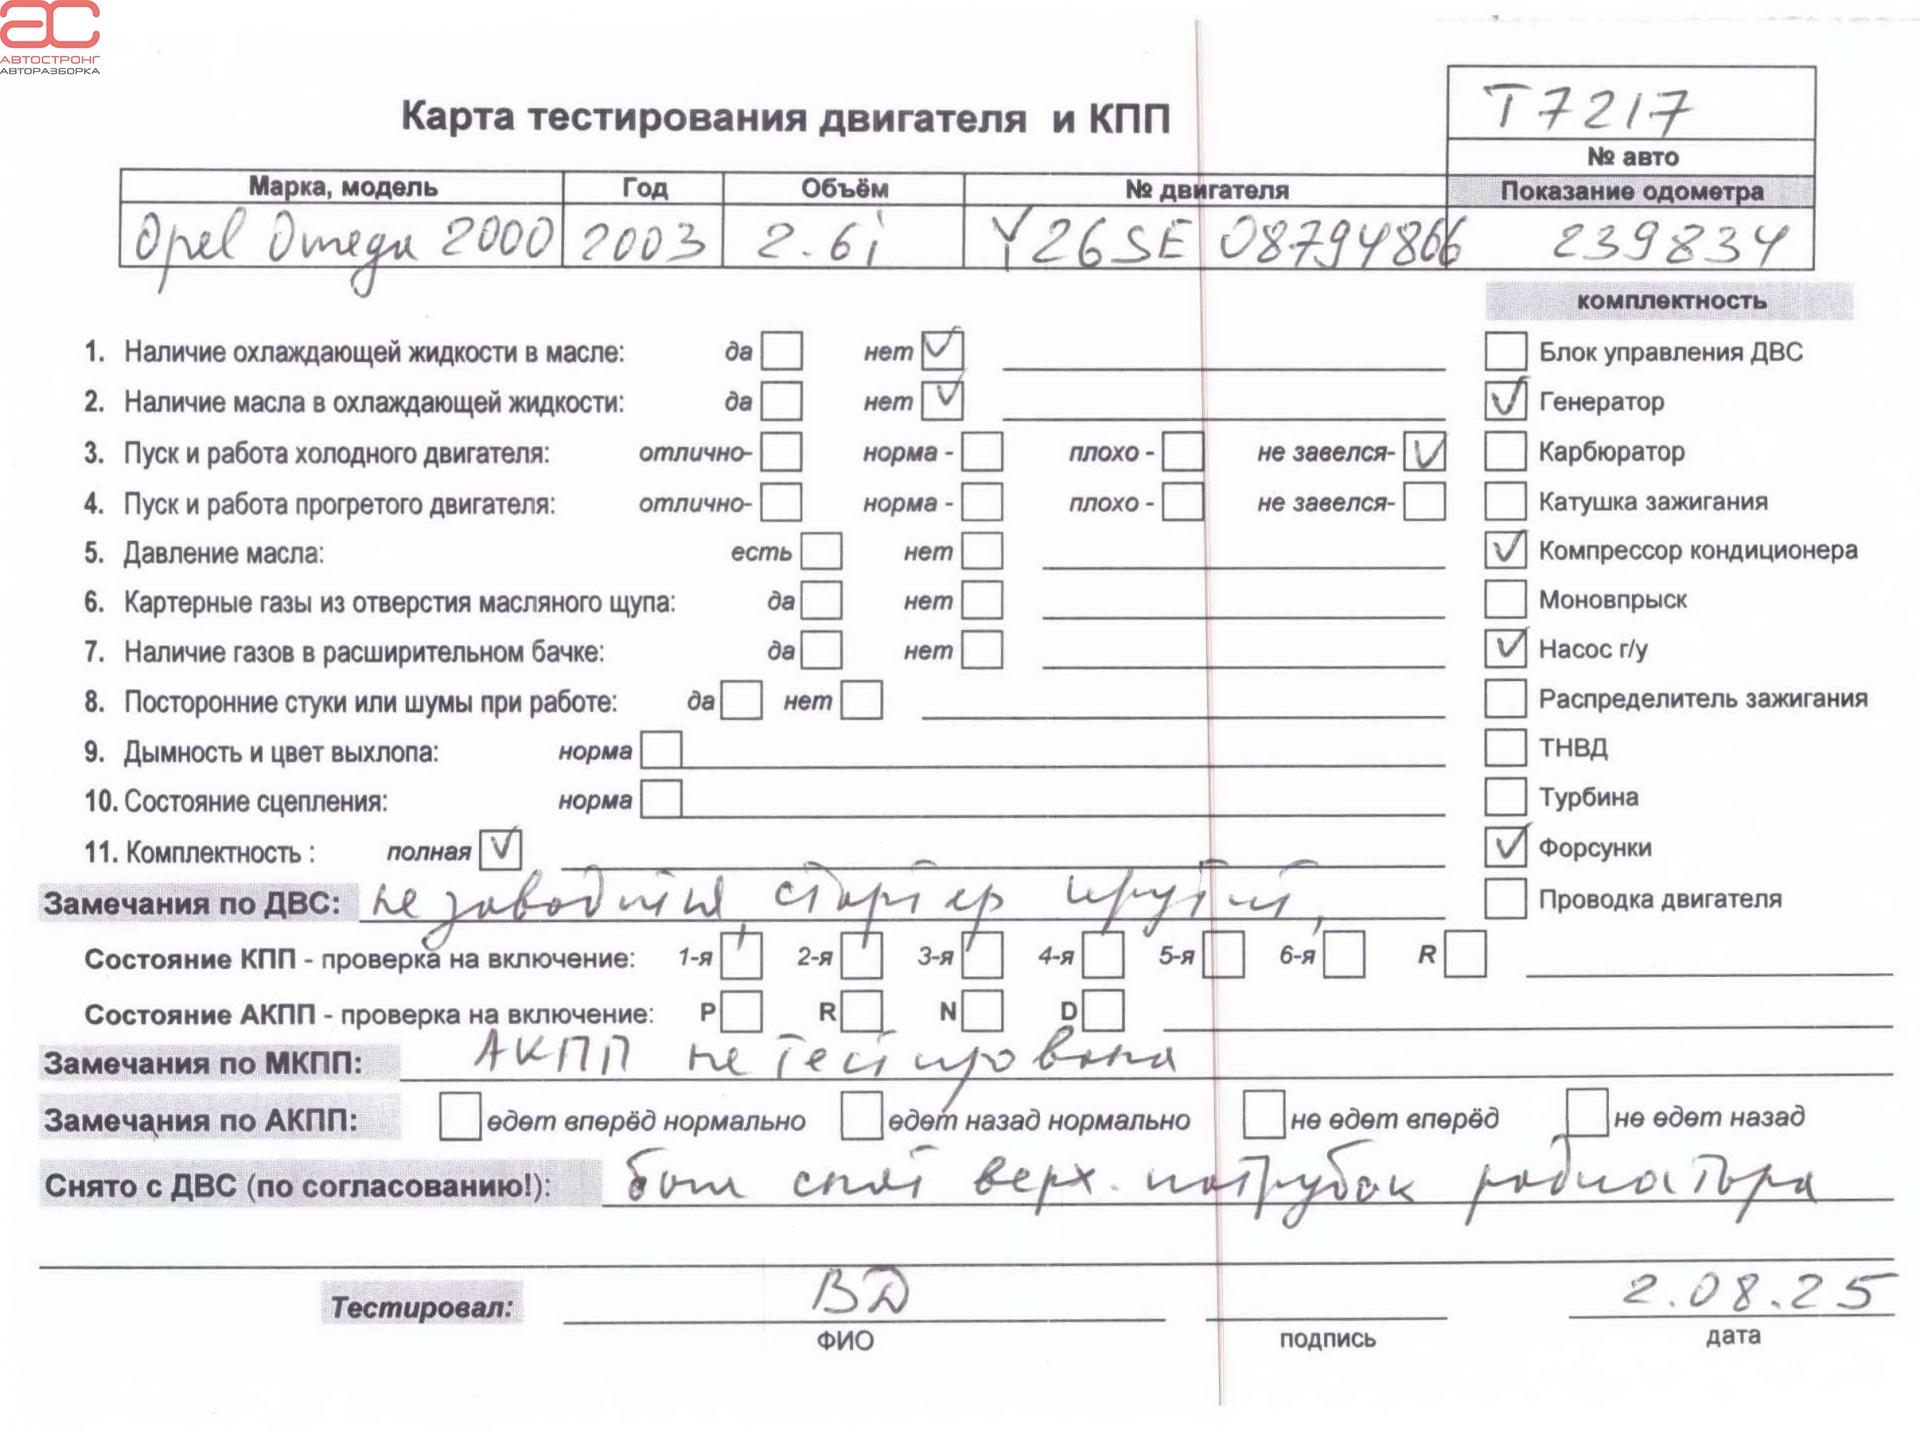 АС
АВТОСТРОНГ
АВТОРАЗБОРКА
Т7217
Карта тестирования двигателя и КПП
№ авто
Марка, модель Год Объём № двигателя Показание одометра
Opel Omega 2000 2003 2.6i Y26SE 08794866 239834
комплектность
1. Наличие охлаждающей жидкости в масле: да нет ✓ Блок управления ДВС
2. Наличие масла в охлаждающей жидкости: да нет ✓ ✓ Генератор
3. Пуск и работа холодного двигателя: отлично- норма - плохо - не завелся- ✓ Карбюратор
4. Пуск и работа прогретого двигателя: отлично- норма - плохо - не завелся- Катушка зажигания
5. Давление масла: есть нет ✓ Компрессор кондиционера
6. Картерные газы из отверстия масляного щупа: да нет Моновпрыск
7. Наличие газов в расширительном бачке: да нет ✓ Насос г/у
8. Посторонние стуки или шумы при работе: да нет Распределитель зажигания
9. Дымность и цвет выхлопа: норма ТНВД
10. Состояние сцепления: норма Турбина
11. Комплектность : полная ✓ ✓ Форсунки
Замечания по ДВС: не заводится, стартер крутит, Проводка двигателя
Состояние КПП - проверка на включение: 1-я 2-я 3-я 4-я 5-я 6-я R
Состояние АКПП - проверка на включение: P R N D
Замечания по МКПП: АКПП не тестирована
Замечания по АКПП: едет вперёд нормально едет назад нормально не едет вперёд не едет назад
Снято с ДВС (по согласованию!): был снят верх. патрубок радиатора
Тестировал: ВД 2.08.25
ФИО подпись дата